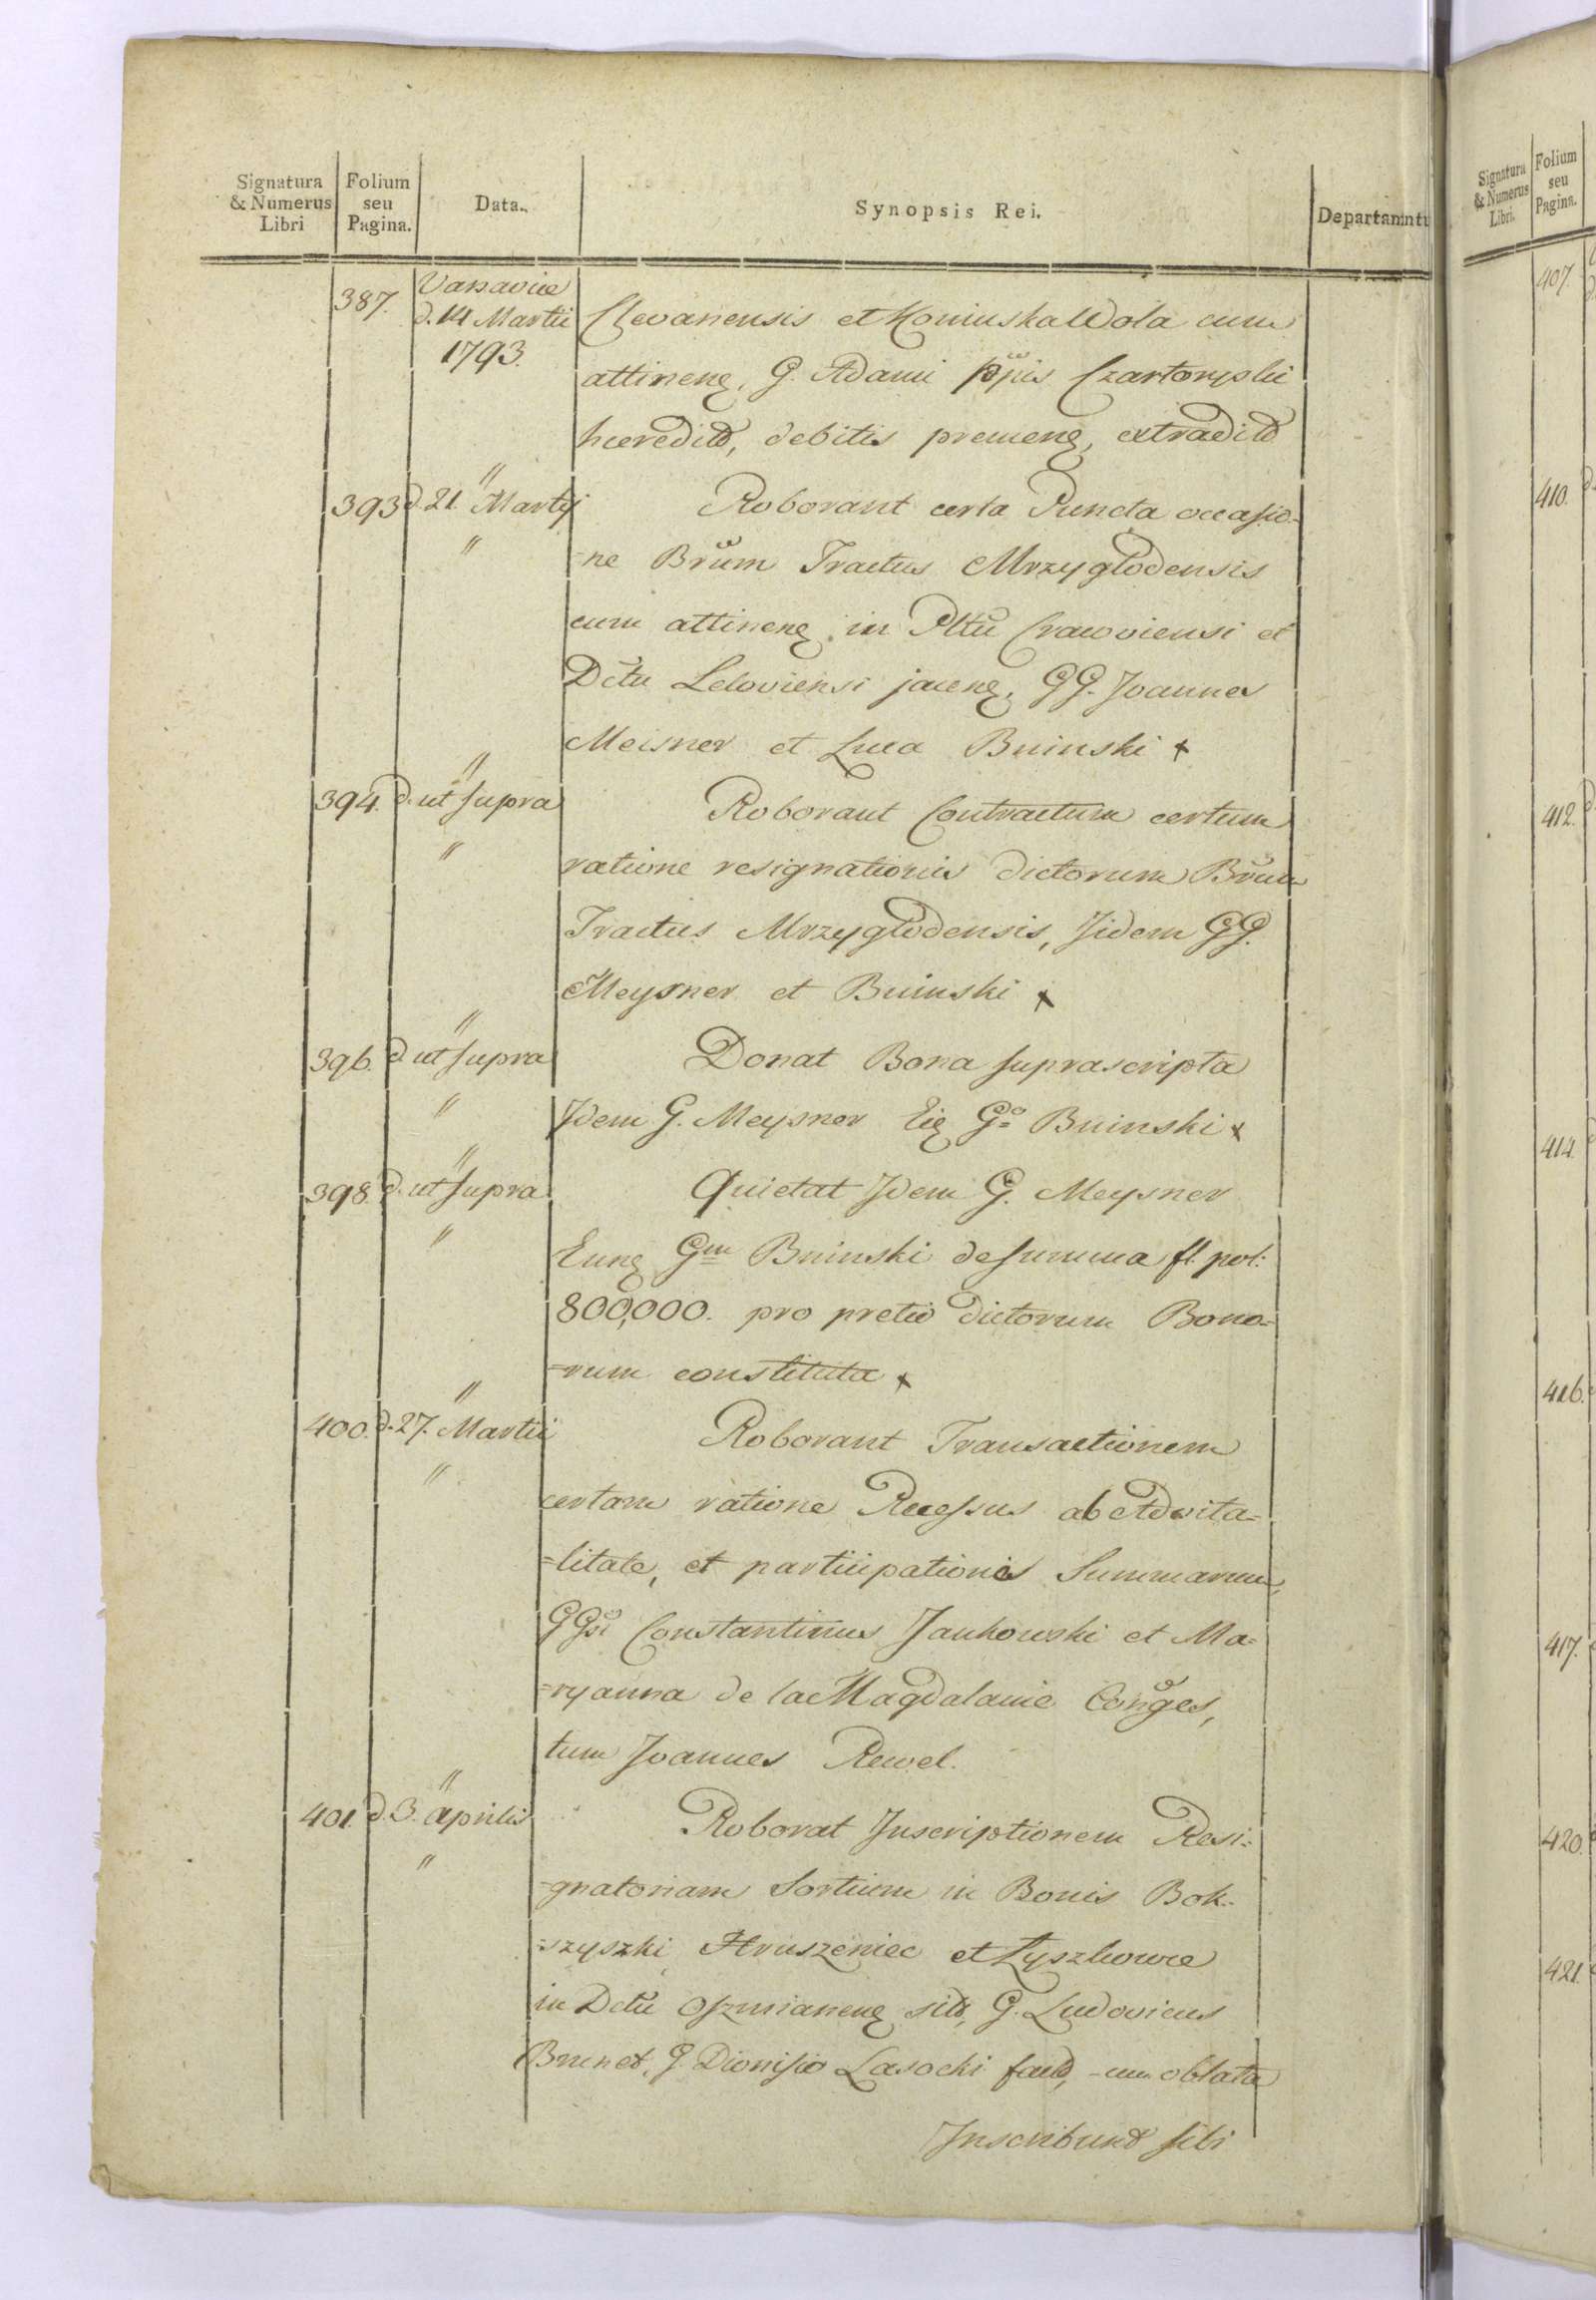 Signatura & Numerus Libri | Folium seu Pagina. | Data. | Synopsis Rei. | Departamntu
387. | Varsaviæ d. 14 Martii 1793. | Clevanensis et Koniuska Wola cum
attinenȩ, G. Adami Ppis Czartoryski
hæredit, debitis premenȩ, extradit
393 | d. 21 " Martij " | Roborant certa Puncta occasio-
=ne Brum Tractus Mrzyglodensis
cum attinenȩ in Pltu Cracoviensi et
Dctu Leloviensi jacenȩ, GG. Joannes
Meisner et Luca Bninski x
394. | " d. ut supra " | Roborant Contractum certum
ratione resignationis dictorum Brum
Tractus Mrzyglodensis, Jidem GG.
Meysner et Bninski x
396. | " d ut supra " | Donat Bona suprascripta
Jdem G. Meysner Eiȩ Go Bninski x
398. | " d. ut supra " | Quietat Jdem G. Meysner
Eunȩ Gm Bninski de summa fl. pol:
800,000. pro pretio dictorum Bono=
=rum constituta x
400. | " d. 27. Martii " | Roborant Transactionem
certam ratione Recessus ab Advita=
=litate, et participationis Summarum,
GGsi Constantinus Jankowski et Ma=
=ryanna de la Magdalanie Conges,
tum Joannes Rewel.
401. | " d. 3. Aprilis " | Roborat Inscriptionem Resi=
=gnatoriam Sortium in Bonis Bok=
=szyszki Hruszeniec et Łyszkowce
in Dctu Oszmianenȩ sit, G. Ludovicus
Brunet, G. Dionisio Lasocki fact, -cum oblata
Inscribunt sibi
Signatura & Numerus Libri. | Folium seu Pagina.
407.
410.
412.
414.
416.
417.
420.
421.